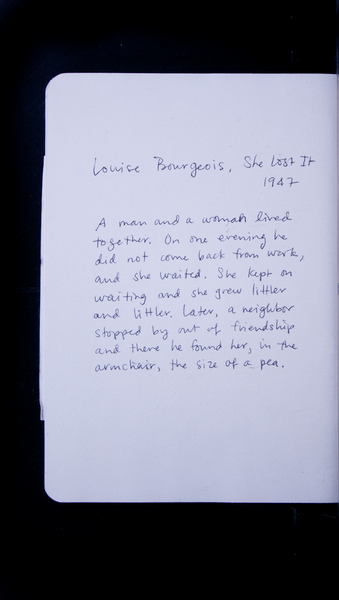 Louise Bourgeois, She Lost It
1947
A man and a woman lived
together. On one evening he
did not come back from work,
and she waited. She kept on
waiting and she grew littler
and littler. Later, a neighbor
stopped by out of friendship
and there he found her, in the
armchair, the size of a pea.